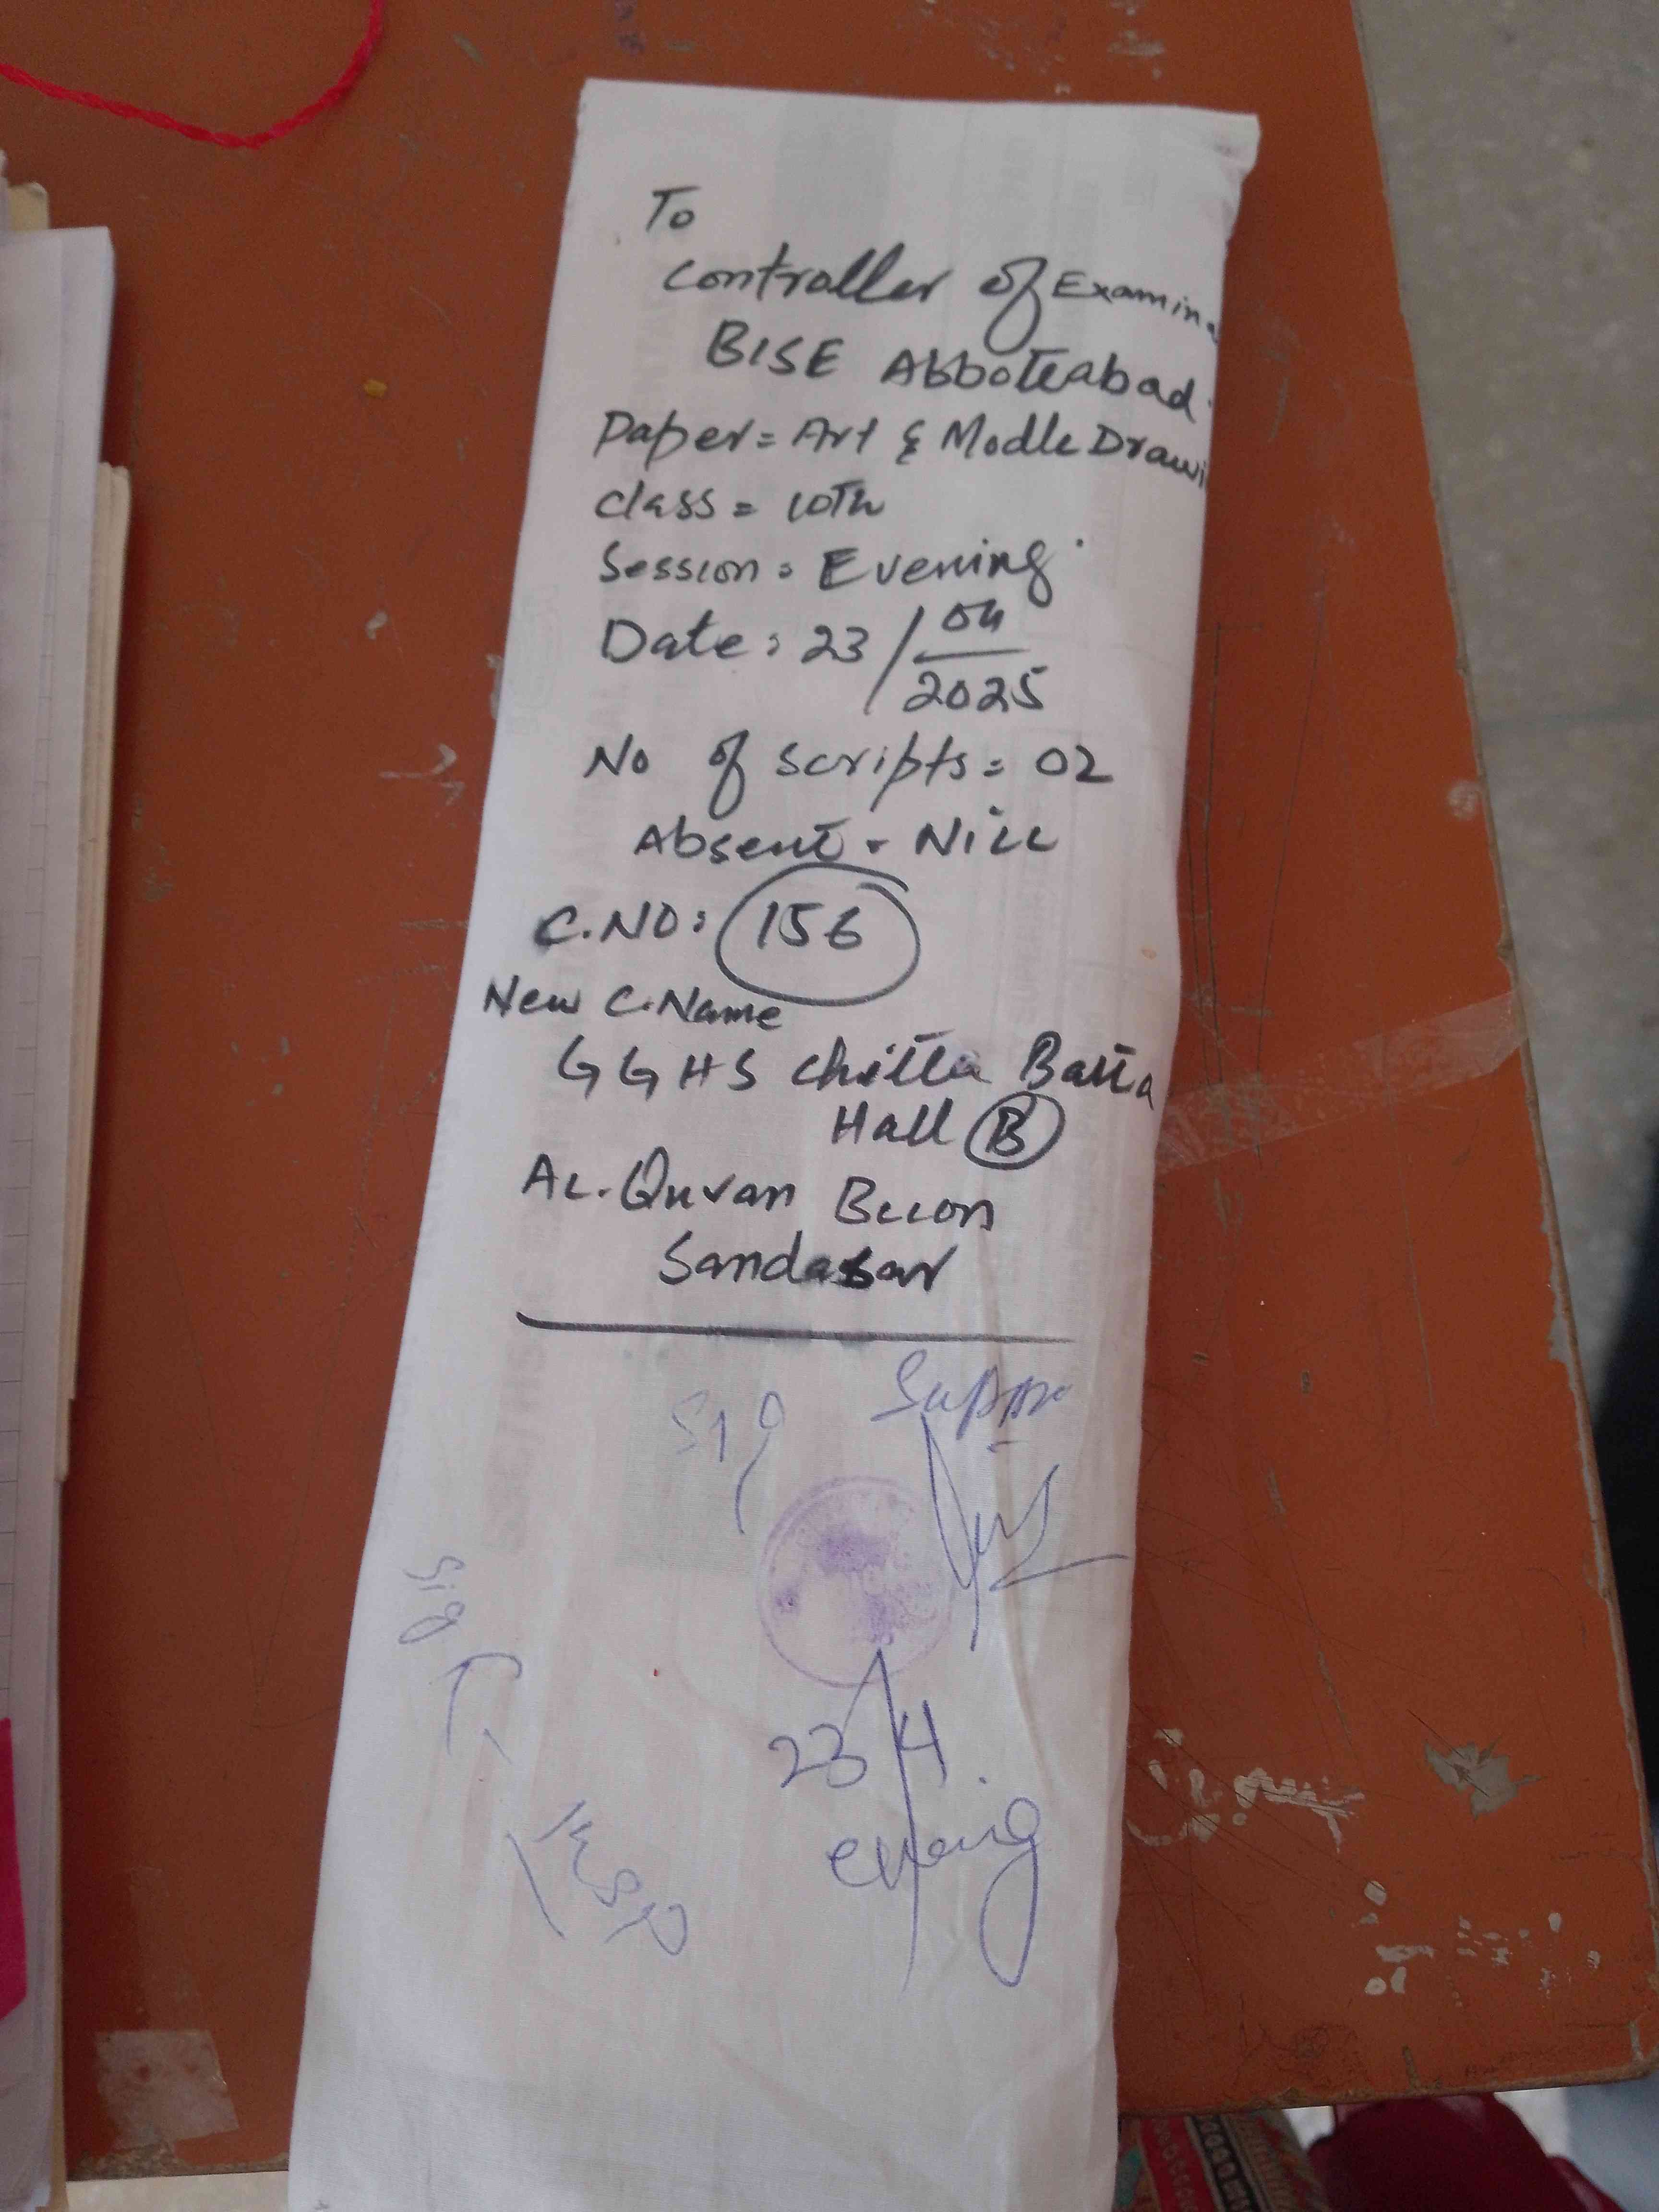 To
Controller of Examina
BISE Abbotabad.
Paper = Art & Modle Drawi
class = 10Th
Session = Evening
Date: 23/04/2025
No of scripts = 02
Absent = Nill
C.NO: 156
New C.Name
GGHS Chitta Batta
Hall B
AL.Quran
Sandasar
Sig Supp
Sig
23/4
eveing